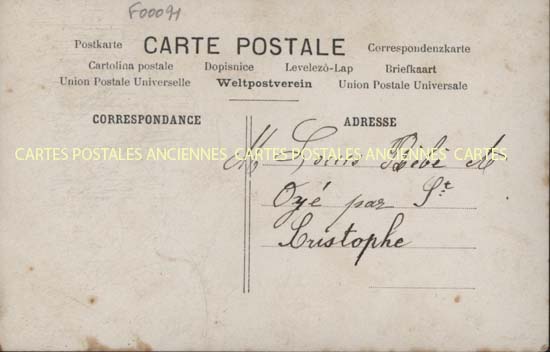 F00091
Postkarte CARTE POSTALE Correspondenzkarte
Cartolina postale Dopisnice Levelezö-Lap Briefkaart
Union Postale Universelle Weltpostverein Union Postale Universale
CORRESPONDANCE ADRESSE
CARTES POSTALES ANCIENNES CARTES POSTALES ANCIENNES CARTES
M Louis Bébé
Oyé par St
Cristophe